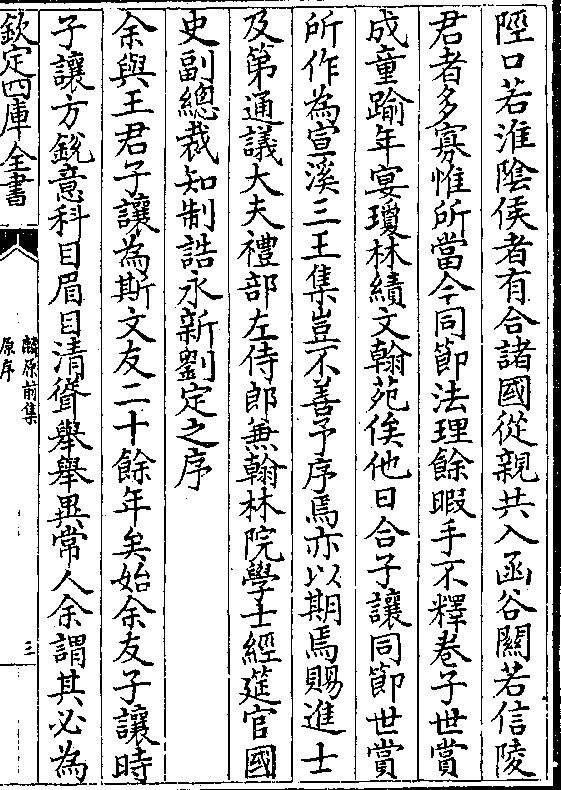 陘口若淮陰侯者有合諸國從親共入函谷關若信陵
君者多寡惟所當今同節法理餘暇手不釋卷子世賞
成童踰年宴瓊林績文翰苑俟他日合子讓同節世賞
所作為宣溪三王集豈不善予序焉亦以期焉賜進士
及第通議大夫禮部左侍郎兼翰林院學士經筵官國
史副總裁知制誥永新劉定之序
余與王君子讓為斯文友二十餘年矣始余友子讓時
子讓方銳意科目眉目清聳舉舉異常人余謂其必為
欽定四庫全書
麟原前集
原序
三